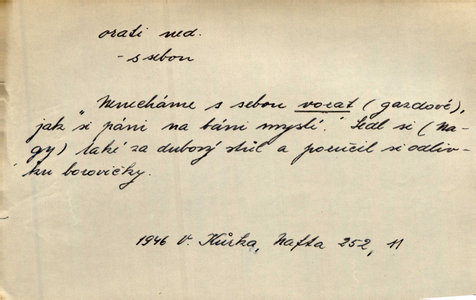 orati ned.
- s sebou
"Nenecháme s sebou vorat (gazdové),
jak si páni na báni myslí." Sedl si (Na-
gy) také za dubový stůl a poručil si odliv-
ku borovičky.
1946 V. Kůrka, Nafta 252, 11